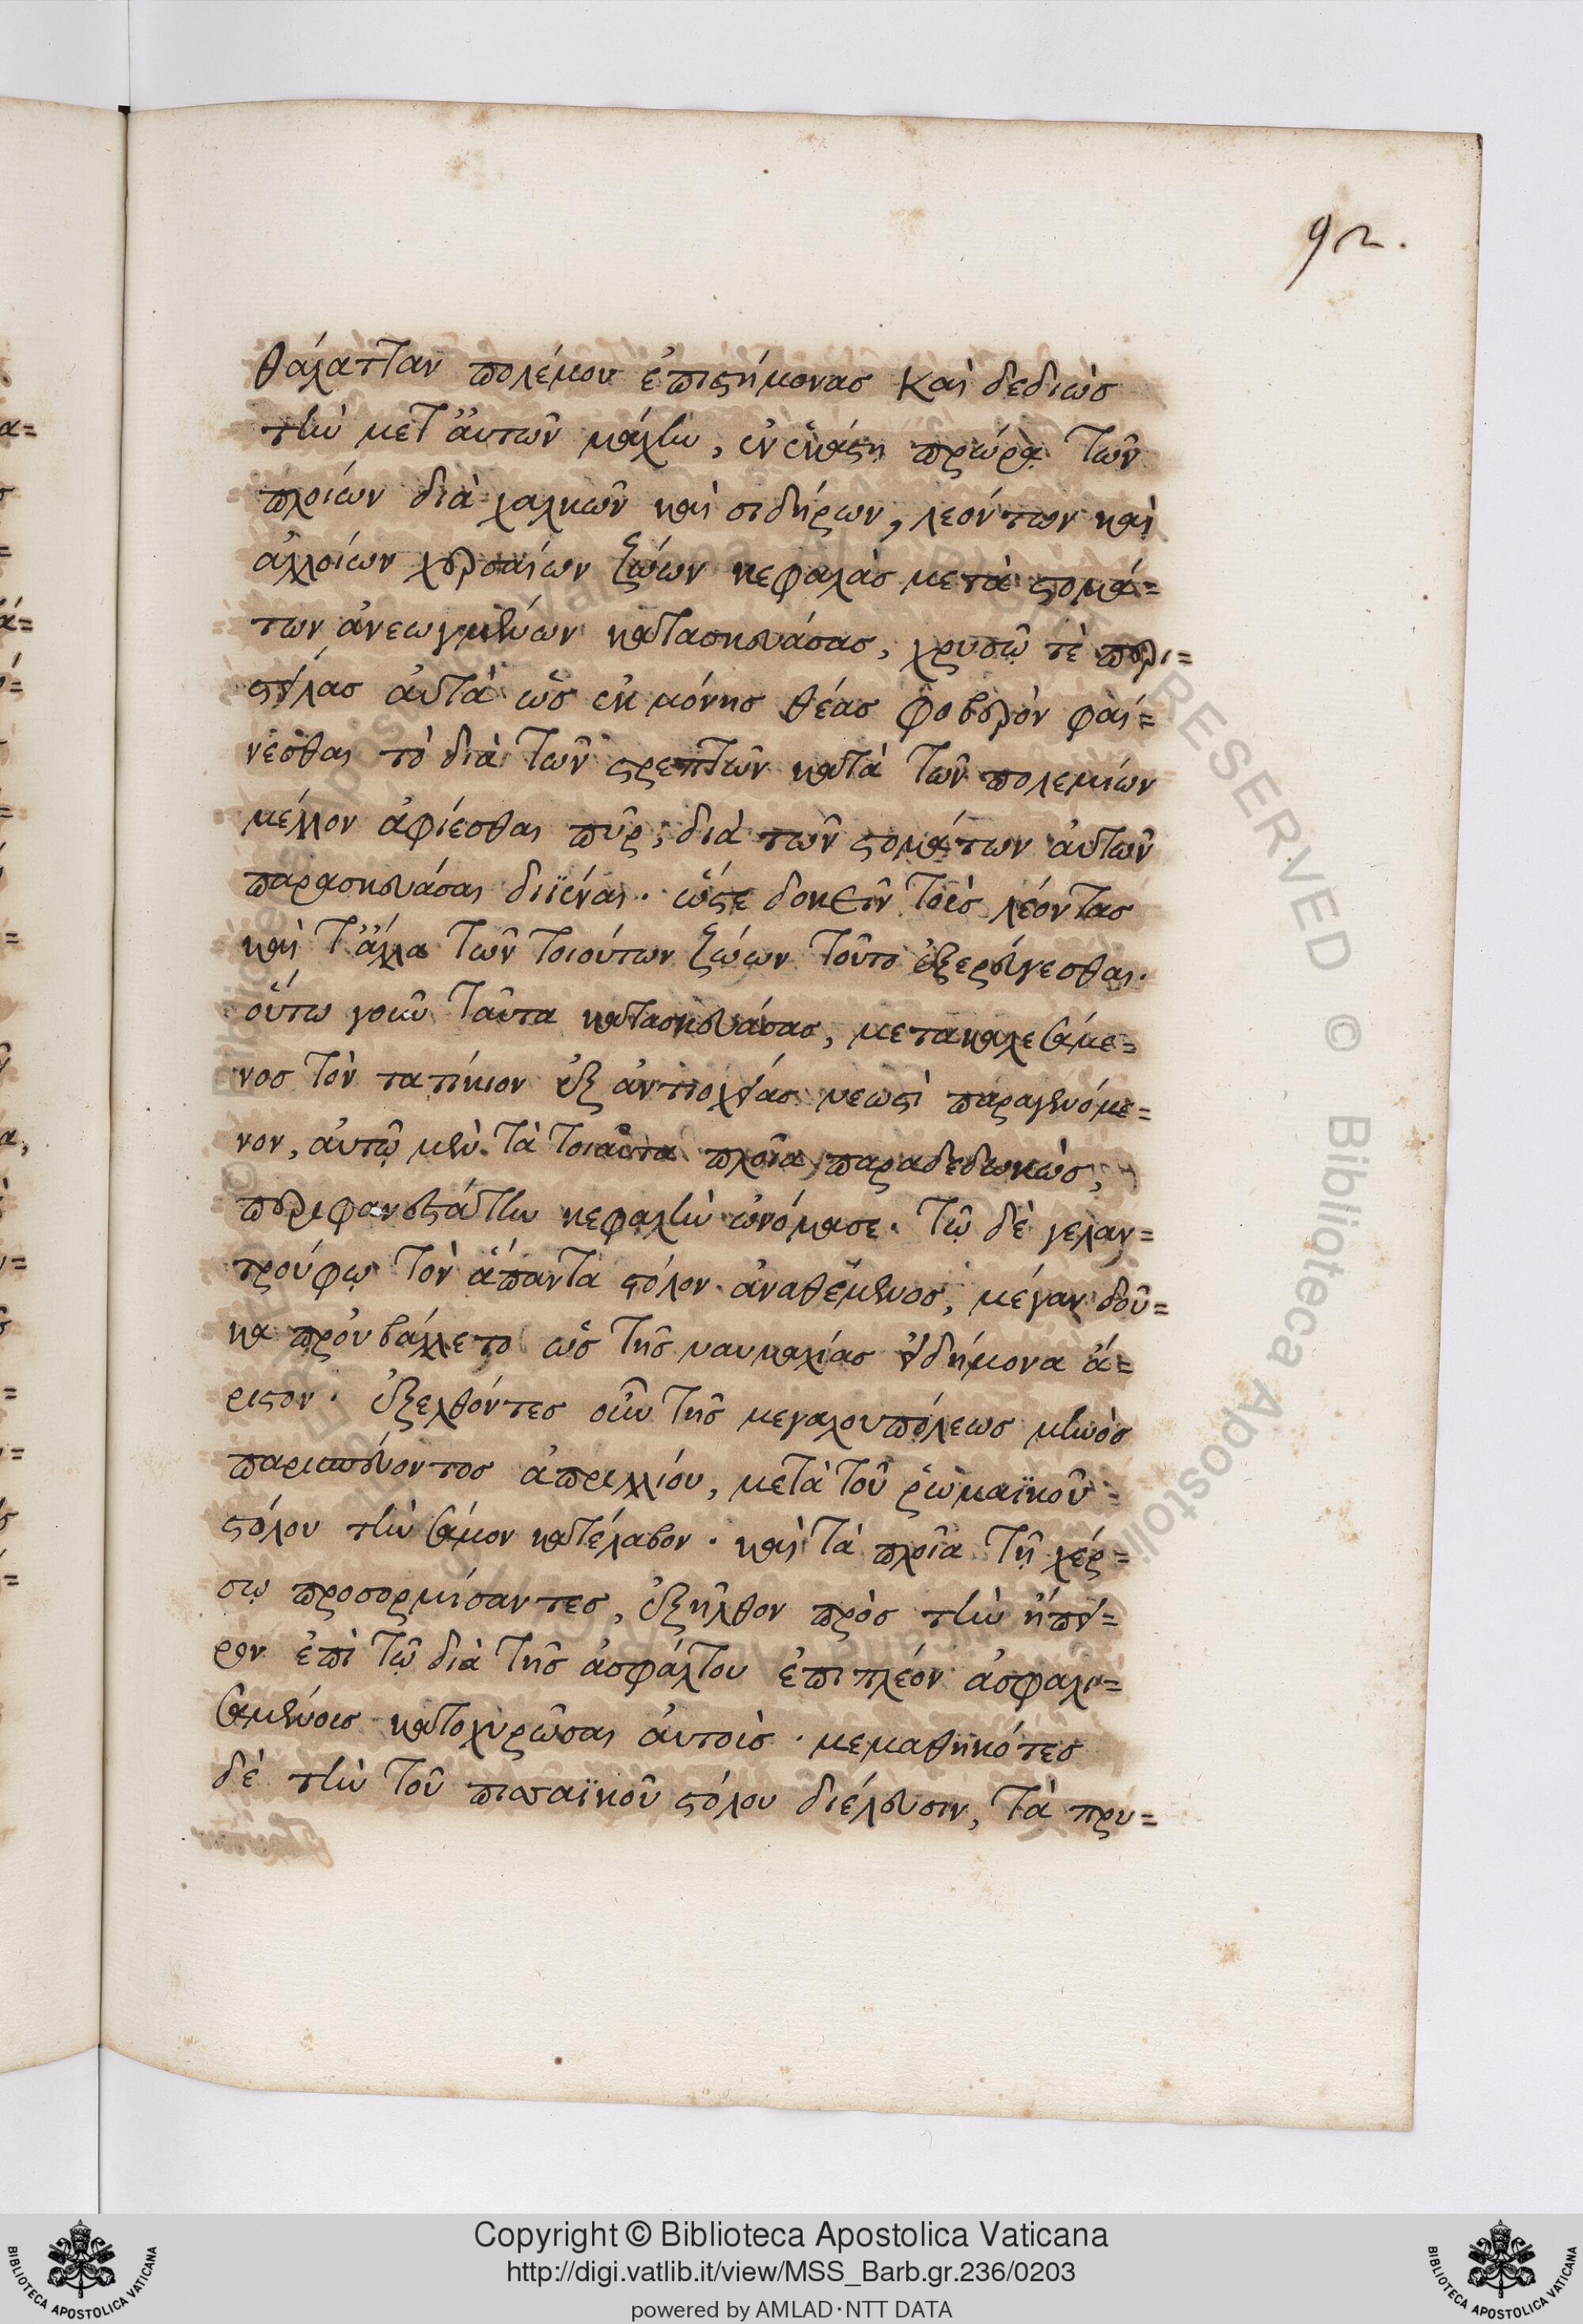 92.
θάλατταν πολέμου ἐπιστήμονας καὶ δεδιὼς
τὴν μετ' ἀυτῶν μάχην, ἐν ἑκάστη πρώρᾳ τῶν
πλοίων διὰ χαλκῶν καὶ σιδήρων, λεόντων καὶ
ἀλλοίων χερσαίων ζώων κεφαλὰς μετὰ στομά=
των ἀνεωγμένων κατασκευάσας, χρυσῷ τὲ περι=
στείλας ἀυτὰ ὡς ἐκ μόνης θέας φοβερὸν φαί=
νεσθαι τὸ διὰ τῶν στρεπτῶν κατὰ τῶν πολεμίων
μέλλον ἀφίεσθαι πῦρ, διὰ τῶν στομάτων ἀυτῶν
παρασκευάσας διϊέναι. ὥστε δοκεῖν τοὺς λέοντας
καὶ τ' ἄλλα τῶν τοιούτων ζώων τοῦτο ἐξερεύγεσθαι.
οὕτω γοῦν ταῦτα κατασκευάσας, μετακαλεσάμε=
νος τὸν τατίκιον ἐξ ἀντιοχείας νεωστὶ παραγενόμε=
νον, ἀυτῷ μὲν τὰ τοιαῦτα πλοῖα παραδεδωκὼς,
περιφανεστάτην κεφαλὴν ὠνόμασε. τῷ δὲ γελαν=
τρούφῳ τὸν ἅπαντα στόλον ἀναθέμενος, μέγαν δοῦ=
κα πρὀυβάλλετο ὡς τῆς ναυμαχίας εἰδήμονα ἄ=
ριστον. ἐξελθόντες οὖν τῆς μεγαλουπόλεως μηνὸς
παριππεύοντος ἀπριλλίου, μετὰ τοῦ ῥωμαϊκοῦ
στόλου τὴν σάμον κατέλαβον. καὶ τὰ πλοῖα τῇ χέρ=
σῳ προσορμίσαντες, ἐξῆλθον πρὸς τὴν ἤπει=
ρον ἐπὶ τῷ διὰ τῆς ἀσφάλτου ἐπιπλέον ἀσφαλι=
σαμένοις κατοχυρῶσαι ἀυτοὺς. μεμαθηκότες
δὲ τὴν τοῦ πισσαϊκοῦ στόλου διέλευσιν, τὰ πρυ=
Copyright © Biblioteca Apostolica Vaticana
http://digi.vatlib.it/view/MSS_Barb.gr.236/0203
powered by AMLAD·NTT DATA
BIBLIOTECA APOSTOLICA VATICANA
BIBLIOTECA APOSTOLICA VATICANA